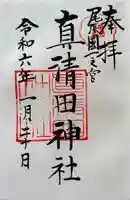 奉拝
尾張國一之宮
真清田神社
令和六年一月三十日